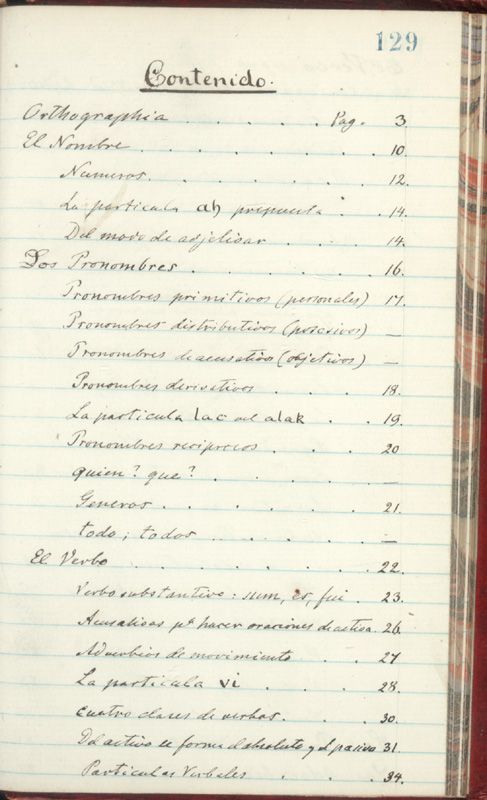 129
Contenido.
Orthographia . . . . . Pag. 3
El Nombre . . . . . . . 10.
Numeros. . . . . . . 12.
La particula ah prepuesta . . 14.
Del modo de adjetivar . . . 14.
Los Pronombres . . . . . . 16.
Pronombres primitivos (personales) 17.
Pronombres distributivos (posesivos) —
Pronombres de acusativo (objetivos) —
Pronombres derivativos . . . 18.
La particula lac vel alak . . 19.
Pronombres reciprocos . . . 20
quien? que? . . . . . —
Generos . . . . . . 21.
todo; todos . . . . . —
El Verbo . . . . . . . 22.
Verbo substantivo: sum, es, fui . 23.
Acusativos pª hacer oraciones de activa. 26.
Adverbios de movimiento . . 27
La particula vi . . . . 28.
cuatro clases de verbos. . . . 30.
Del activo se forma el absoluto y el pasivo 31.
Particulas Verbales . . . . 34.